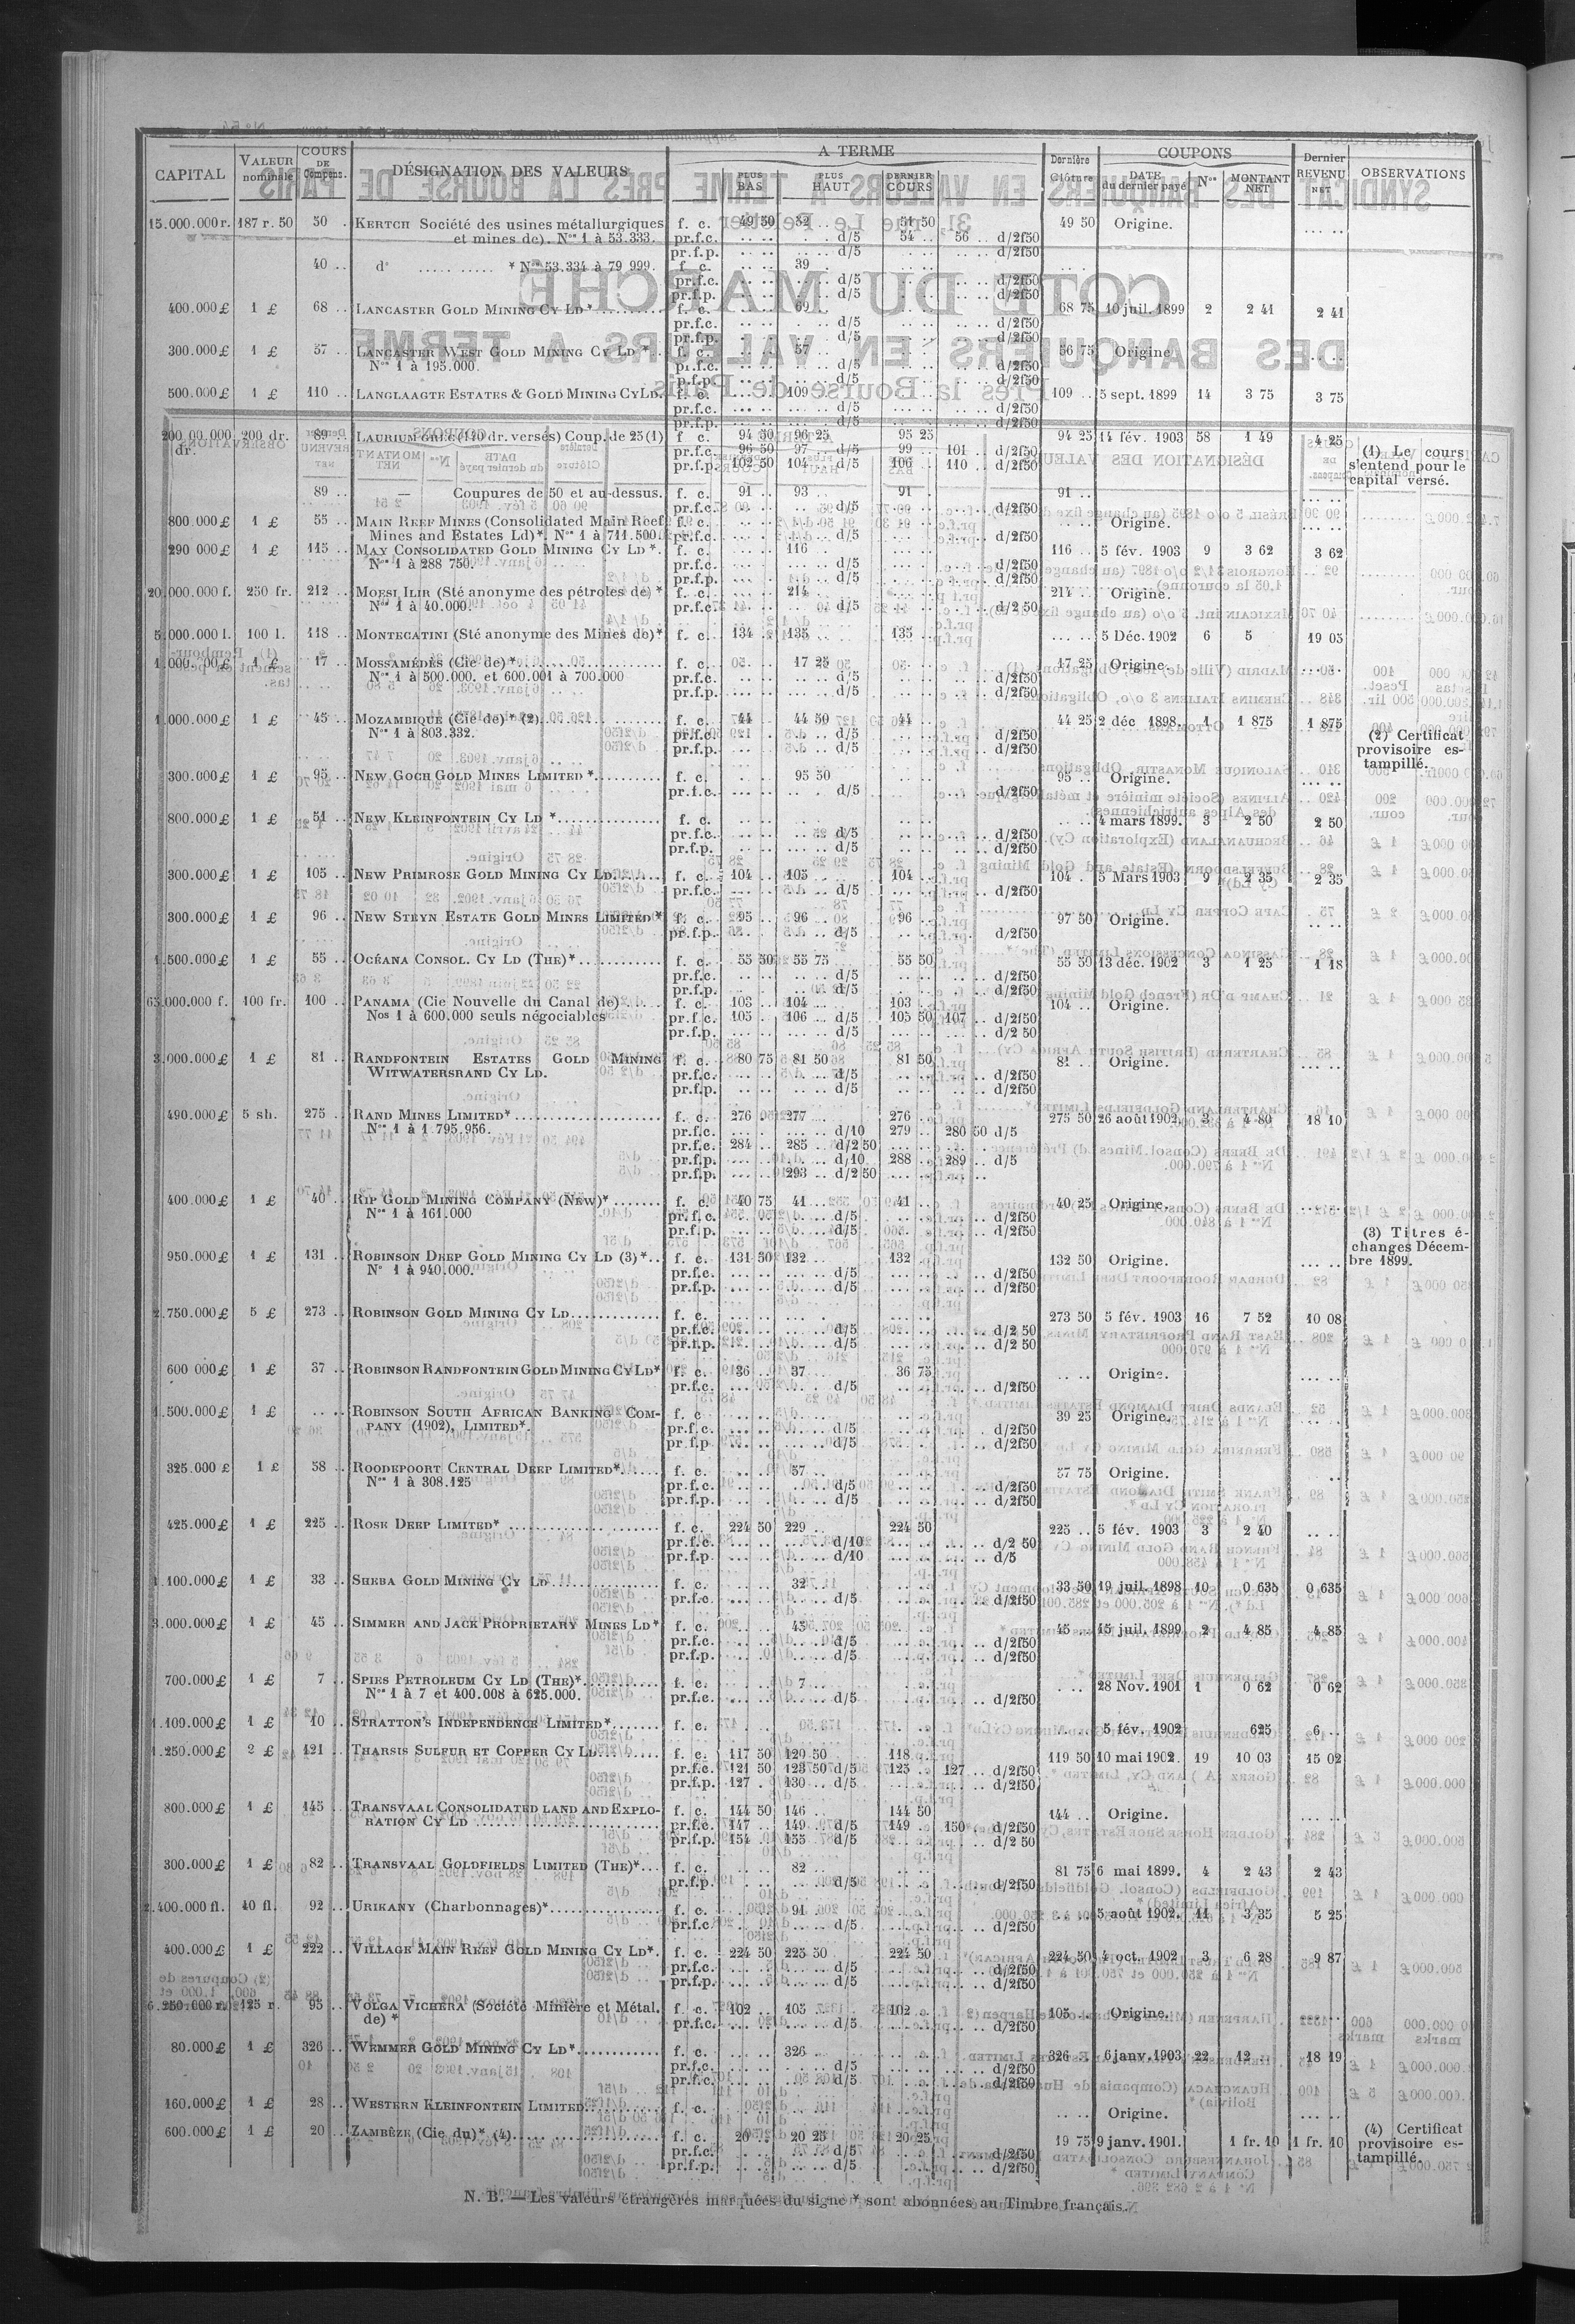 CAPITAL VALEUR nominale COURS DE Compens. DÉSIGNATION DES VALEURS A TERME PLUS BAS PLUS HAUT DERNIER COURS Dernière Clôture COUPONS DATE du dernier payé Nos MONTANT NET Dernier REVENU NET OBSERVATIONS
15.000.000 r. 187 r. 50 50 . KERTCH Société des usines métallurgiques f. c. 49 50 52 .. 51 50 49 50 Origine. .... ..
et mines de). Nos 1 à 53.333. pr.f.c. d/5 54 .. 56 .. d/2f50
pr.f.p. d/5 d/2f50
40 .. do ..... ..... * Nos 53.334 à 79 999. f. c. 39
pr.f.c. d/2f50
pr.f.p. d/5 d/2f50
400.000 £ 1 £ 68 .. LANCASTER GOLD MINING CY LD * f. c. 69 68 75 10 juil. 1899 2 2 41 2 41
pr.f.c. d/5 d/2f50
pr.f.p. d/5 d/2f50
300.000 £ 1 £ 57 .. LANCASTER WEST GOLD MINING CY LD *. f. c. 57 56 75 Origine.
Nos 1 à 195.000. pr.f.c. d/5 d/2f50
pr.f.p. d/5 d/2f50
500.000 £ 1 £ 110 .. LANGLAAGTE ESTATES & GOLD MINING CY LD. f. c. 109 109 .. 5 sept. 1899 14 3 75 3 75
pr.f.c. d/5 d/2f50
pr.f.p. d/5 d/2f50
200 dr. 89 .. LAURIUM GREC (140 dr. versés) Coup. de 25 (1) f c. 94 50 96 25 95 25 94 25 14 fév. 1903 58 1 49 4 25
dr. pr.f.c. 96 50 97 .. d/5 99 .. 101 .. d/2f50 (1) Le cours
pr.f.p. 102 50 104 .. d/5 106 110 .. d/2f50 s'entend pour le
capital versé.
89 .. — Coupures de 50 et au-dessus. f. c. 91 .. 93 91 91 ..
pr.f.c. d/5 d/2f50
800.000 £ 1 £ 55 .. MAIN REEF MINES (Consolidated Main Reef f. c. Origine.
Mines and Estates Ld) *. Nos 1 à 711.500. pr.f.c. d/2f50
290 000 £ 1 £ 115 .. MAY CONSOLIDATED GOLD MINING CY LD *. f. c. 116 116 .. 5 fév. 1903 9 3 62 3 62
Nos 1 à 288 750. pr.f.c. d/5 d/2f50
pr.f.p. d/5 d/2f50
20.000.000 f. 250 fr. 212 .. MOESI ILIR (Sté anonyme des pétroles de) * f. c. 214 214 .. Origine.
Nos 1 à 40.000. pr.f.c. d/5 d/2 50
5.000.000 l. 100 l. 118 .. MONTECATINI (Sté anonyme des Mines de) * f. c. 134 .. 135 135 .... 5 Déc. 1902 6 5 19 05
1 £ 17 .. MOSSAMÉDÈS (Cie de) * f. c. 17 25 17 25 Origine.
Nos 1 à 500.000. et 600.001 à 700.000 pr.f.c. d/5 d/2f50
pr.f.p. d/5 d/2f50
1.000.000 £ 1 £ 45 .. MOZAMBIQUE (Cie de) * (2) f. c. 44 44 50 44 44 25 2 déc 1898. 1 1 875 1 875
Nos 1 à 803.332. pr.f.c. d/5 d/2f50 (2) Certificat
pr.f.p. d/5 d/2f50 provisoire es-
tampillé.
300.000 £ 1 £ 95 .. NEW GOCH GOLD MINES LIMITED * f. c. 95 50 95 .. Origine.
pr.f.c. d/5 d/2f50
800.000 £ 1 £ 51 NEW KLEINFONTEIN CY LD * f. c. 4 mars 1899. 3 2 50 2 50
pr.f.c. d/5 d/2f50
pr.f.p. d/5 d/2f50
300.000 £ 1 £ 105 .. NEW PRIMROSE GOLD MINING CY LD. f. c. 104 .. 105 104 104 .. 5 Mars 1903 9 2 35 2 35
pr.f.c. d/5 d/2f50
300.000 £ 1 £ 96 .. NEW STEYN ESTATE GOLD MINES LIMITED * f. c. 95 96 96 .. 97 50 Origine.
pr.f.p. d/5 d/2f50
1.500.000 £ 1 £ 55 .. OCÉANA CONSOL. CY LD (THE) * f. c. 55 50 55 75 55 50 55 50 13 déc. 1902 3 1 25 1 18
pr.f.c. d/5 d/2f50
pr.f.p. d/5 d/2f50
65.000.000 f. 100 fr. 100 .. PANAMA (Cie Nouvelle du Canal de) f. c. 103 .. 104 103 .. 104 .. Origine.
Nos 1 à 600.000 seuls négociables pr.f.c. 105 .. 106 .. d/5 105 50 107 .. d/2f50
pr.f.p. d/5 d/2 50
3.000.000 £ 1 £ 81 .. RANDFONTEIN ESTATES GOLD MINING f. c. 80 75 81 50 81 50 81 .. Origine.
WITWATERSRAND CY LD. pr.f.c. d/5 d/2f50
pr.f.p. d/5 d/2f50
490.000 £ 5 sh. 275 .. RAND MINES LIMITED * f. c. 276 277 276 .. 275 50 26 août 1902 3 4 80 18 10
Nos 1 à 1.795.956. pr.f.c. d/10 279 .. 280 50 d/5
pr.f.c. 284 .. 285 .. d/2 50
pr.f.p. d/10 288 289 .. d/5
pr.f.p. 293 .. d/2 50
400.000 £ 1 £ 40 .. RIP GOLD MINING COMPANY (NEW) * f. c. 40 75 41 41 .. 40 25 Origine.
Nos 1 à 161.000 pr.f.c. d/5 d/2f50
pr.f.p. d/5 d/2f50
950.000 £ 1 £ 131 .. ROBINSON DEEP GOLD MINING CY LD (3) *.. f. c. 131 50 132 132 .. 132 50 Origine. (3) Titres é-
No 1 à 940.000. pr.f.c. d/5 d/2f50 changes Décem-
pr.f.p. d/5 d/2f50 bre 1899.
2.750.000 £ 5 £ 273 .. ROBINSON GOLD MINING CY LD f. c. 273 50 5 fév. 1903 16 7 52 10 08
pr.f.c. d/5 d/2 50
pr.f.p. d/5 d/2 50
600 000 £ 1 £ 37 .. ROBINSON RANDFONTEIN GOLD MINING CY LD * f. c. 36 .. 37 .. 36 75 Origine.
pr.f.c. d/5 d/2f50
1.500.000 £ 1 £ .. .. ROBINSON SOUTH AFRICAN BANKING COM- f. c 39 25 Origine.
PANY (1902), LIMITED *. pr.f.c. d/5 d/2f50
pr.f.p. d/5 d/2f50
325.000 £ 1 £ 58 .. ROODEPOORT CENTRAL DEEP LIMITED * f. c. 57 57 75 Origine.
Nos 1 à 308.125 pr.f.c. d/5 d/2f50
pr.f.p. d/5 d/2f50
425.000 £ 1 £ 225 .. ROSE DEEP LIMITED * f. c. 224 50 229 224 50 225 .. 5 fév. 1903 3 2 40
pr.f.c. d/10 d/2 50
pr.f.p. d/10 d/5
1.100.000 £ 1 £ 33 .. SHEBA GOLD MINING CY LD f. c. 32 33 50 19 juil. 1898 10 0 635 0 635
pr.f.c. d/5 d/2f50
3.000.000 £ 1 £ 45 .. SIMMER AND JACK PROPRIETARY MINES LD * f. c. 45 45 .. 15 juil. 1899 2 4 85 4 85
pr.f.c. d/5 d/2f50
pr.f.p. d/2f50
700.000 £ 1 £ 7 .. SPIES PETROLEUM CY LD (THE) * f. c. 7 28 Nov. 1901 1 0 62 0 62
Nos 1 à 7 et 400.008 à 625.000. pr.f.c. d/5 d/2f50
1.100.000 £ 1 £ 10 .. STRATTON'S INDEPENDENCE LIMITED * f. c. 5 fév. 1902 625 6 ..
1.250.000 £ 2 £ 121 .. THARSIS SULFUR ET COPPER CY LD. f. c. 117 50 120 50 118 119 50 10 mai 1902. 19 10 03 15 02
pr.f.c. 121 50 123 50 d/5 125 127 d/2f50
pr.f.p. 127 130 .. d/5 d/2f50
800.000 £ 1 £ 145 .. TRANSVAAL CONSOLIDATED LAND AND EXPLO- f. c. 144 50 146 144 50 144 .. Origine.
RATION CY LD pr.f.c. 147 149 .. d/5 149 150 d/2f50
pr.f.p. 154 155 d/5 d/2 50
300.000 £ 1 £ 82 .. TRANSVAAL GOLDFIELDS LIMITED (THE) *... f. c. 82 81 75 6 mai 1899. 4 2 43 2 43
pr.f.p. d/5 d/2f50
2.400.000 fl. 40 fl. 92 .. URIKANY (Charbonnages) * f. c. 91 5 août 1902. 11 3 35 5 25
pr.f.c d/5 d/2f50
400.000 £ 1 £ 222 .. VILLAGE MAIN REEF GOLD MINING CY LD *. f. c. 224 50 225 50 224 50 224 50 4 oct. 1902 3 6 28 9 87
pr.f.c. d/5 d/2f50
pr.f.p. d/5 d/2f50
6.250.000 r. 125 r. 95 .. VOLGA VICHERA (Société Minière et Métal. f. c. 102 .. 105 102 105 .. Origine.
de) * pr.f.c. d/5 d/2f50
80.000 £ 1 £ 326 .. WEMMER GOLD MINING CY LD * f. c. 326 326 .. 6 janv. 1903 22 12 .. 18 19
pr.f.c. d/5 d/2f50
pr.f.c. d/5 d/2f50
160.000 £ 1 £ 28 .. WESTERN KLEINFONTEIN LIMITED f. c. Origine.
600.000 £ 1 £ 20 .. ZAMBÈZE (Cie du) * (4) f. c. 20 20 25 20 25 19 75 9 janv. 1901. 1 fr. 10 1 fr. 10 (4) Certificat
pr.f.c. d/5 d/2f50 provisoire es-
pr.f.p. d/5 d/2f50 tampillé.
N. B. — Les valeurs étrangères marquées du signe * sont abonnées au Timbre français.